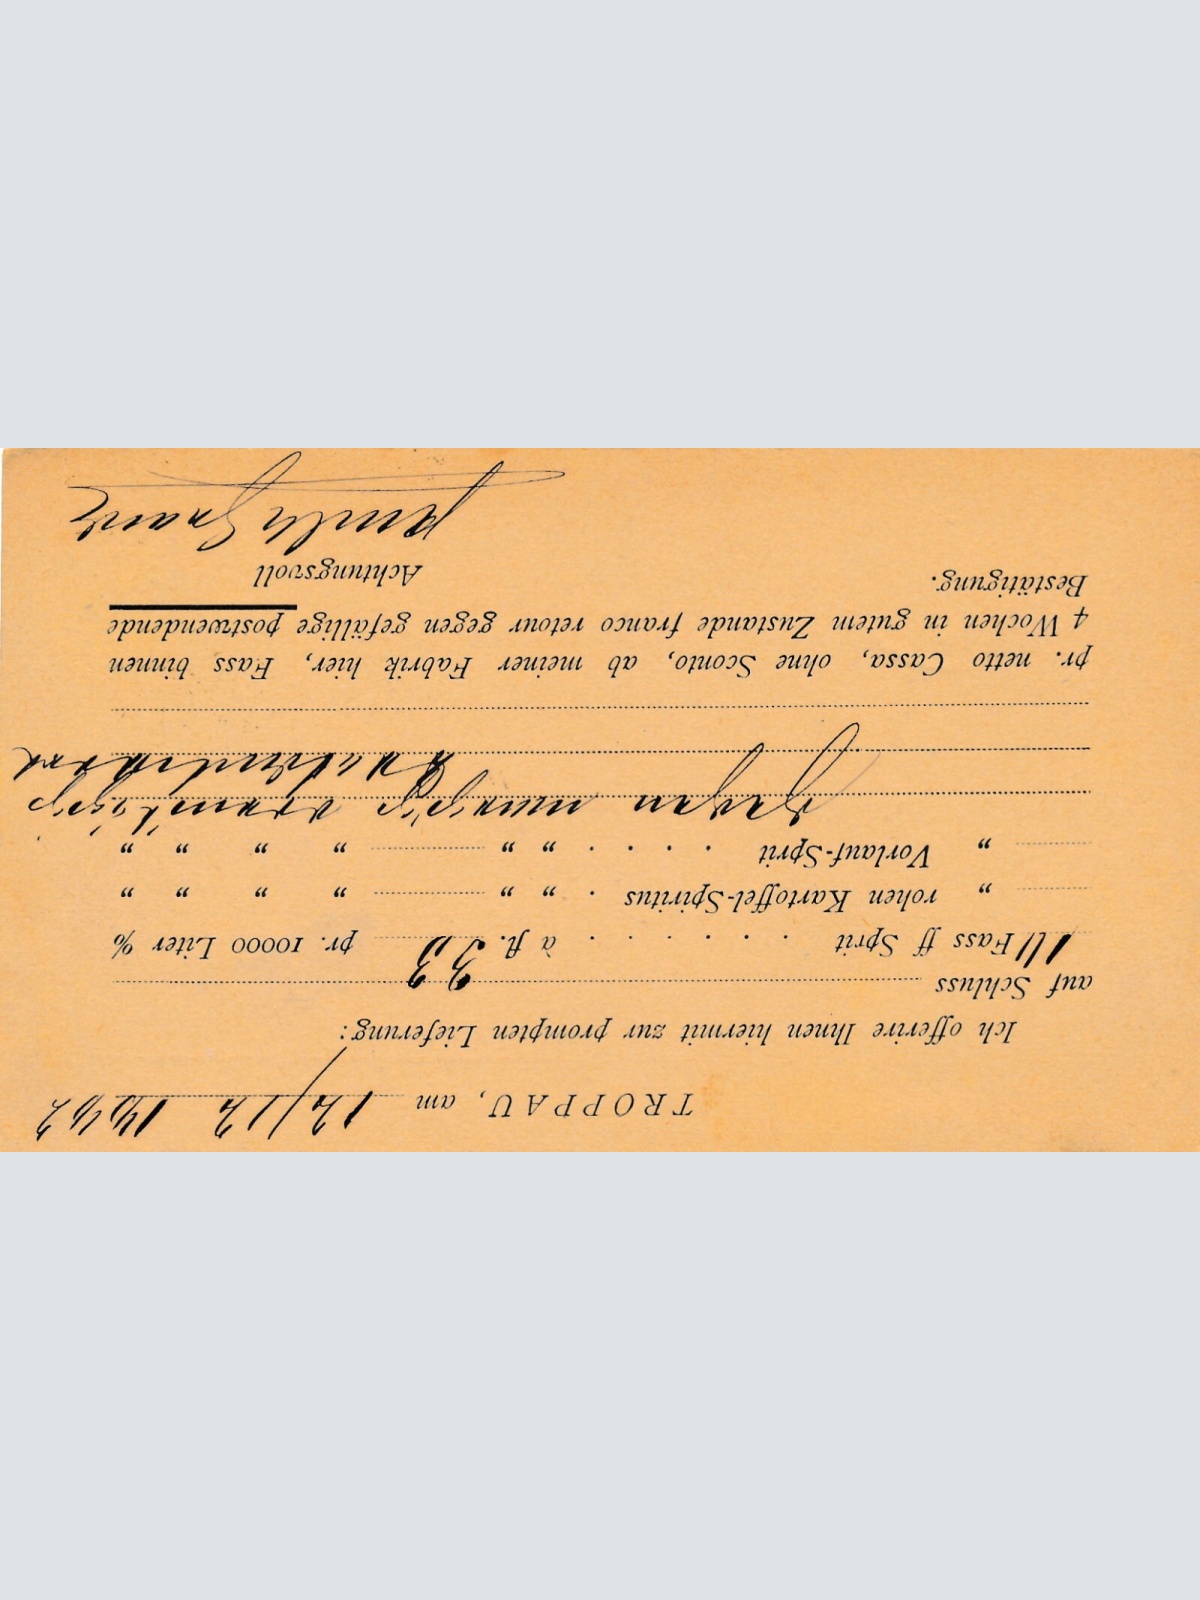 TROPPAU, am 12/12 1892
Ich offerire Ihnen hiermit zur prompten Lieferung:
auf Schluss
10 Fass ff Sprit . . . . . . à fl. 33 pr. 10000 Liter %
„ rohen Kartoffel-Spiritus . „ „ „ „ „ „
„ Vorlauf-Sprit . . . . „ „ „ „ „ „
gegen
pr. netto Cassa, ohne Sconto, ab meiner Fabrik hier, Fass binnen
4 Wochen in gutem Zustande franco retour gegen gefällige postwendende
Bestätigung.
Achtungsvoll